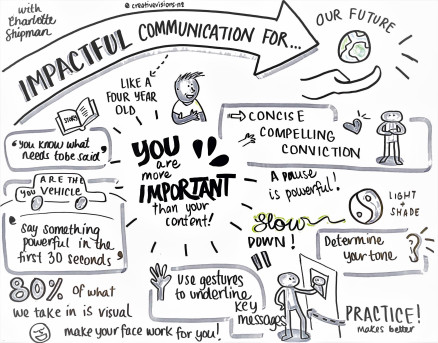 with
Charlotte
Shipman
@creativevisions.nz
IMPACTFUL COMMUNICATION FOR...
OUR FUTURE
LIKE A
FOUR YEAR
OLD
STORY
"you know what
needs to be said"
YOU ARE THE
VEHICLE
"say something
powerful in the
first 30 seconds"
80% of what
we take in is visual
make your face work for you!
YOU
are
more
IMPORTANT
than your
content!
CONCISE
COMPELLING
CONVICTION
A pause
is powerful!
Slow
DOWN!
LIGHT
+
SHADE
Determine
your tone
use gestures
to underline
key
messages
PRACTICE!
makes better